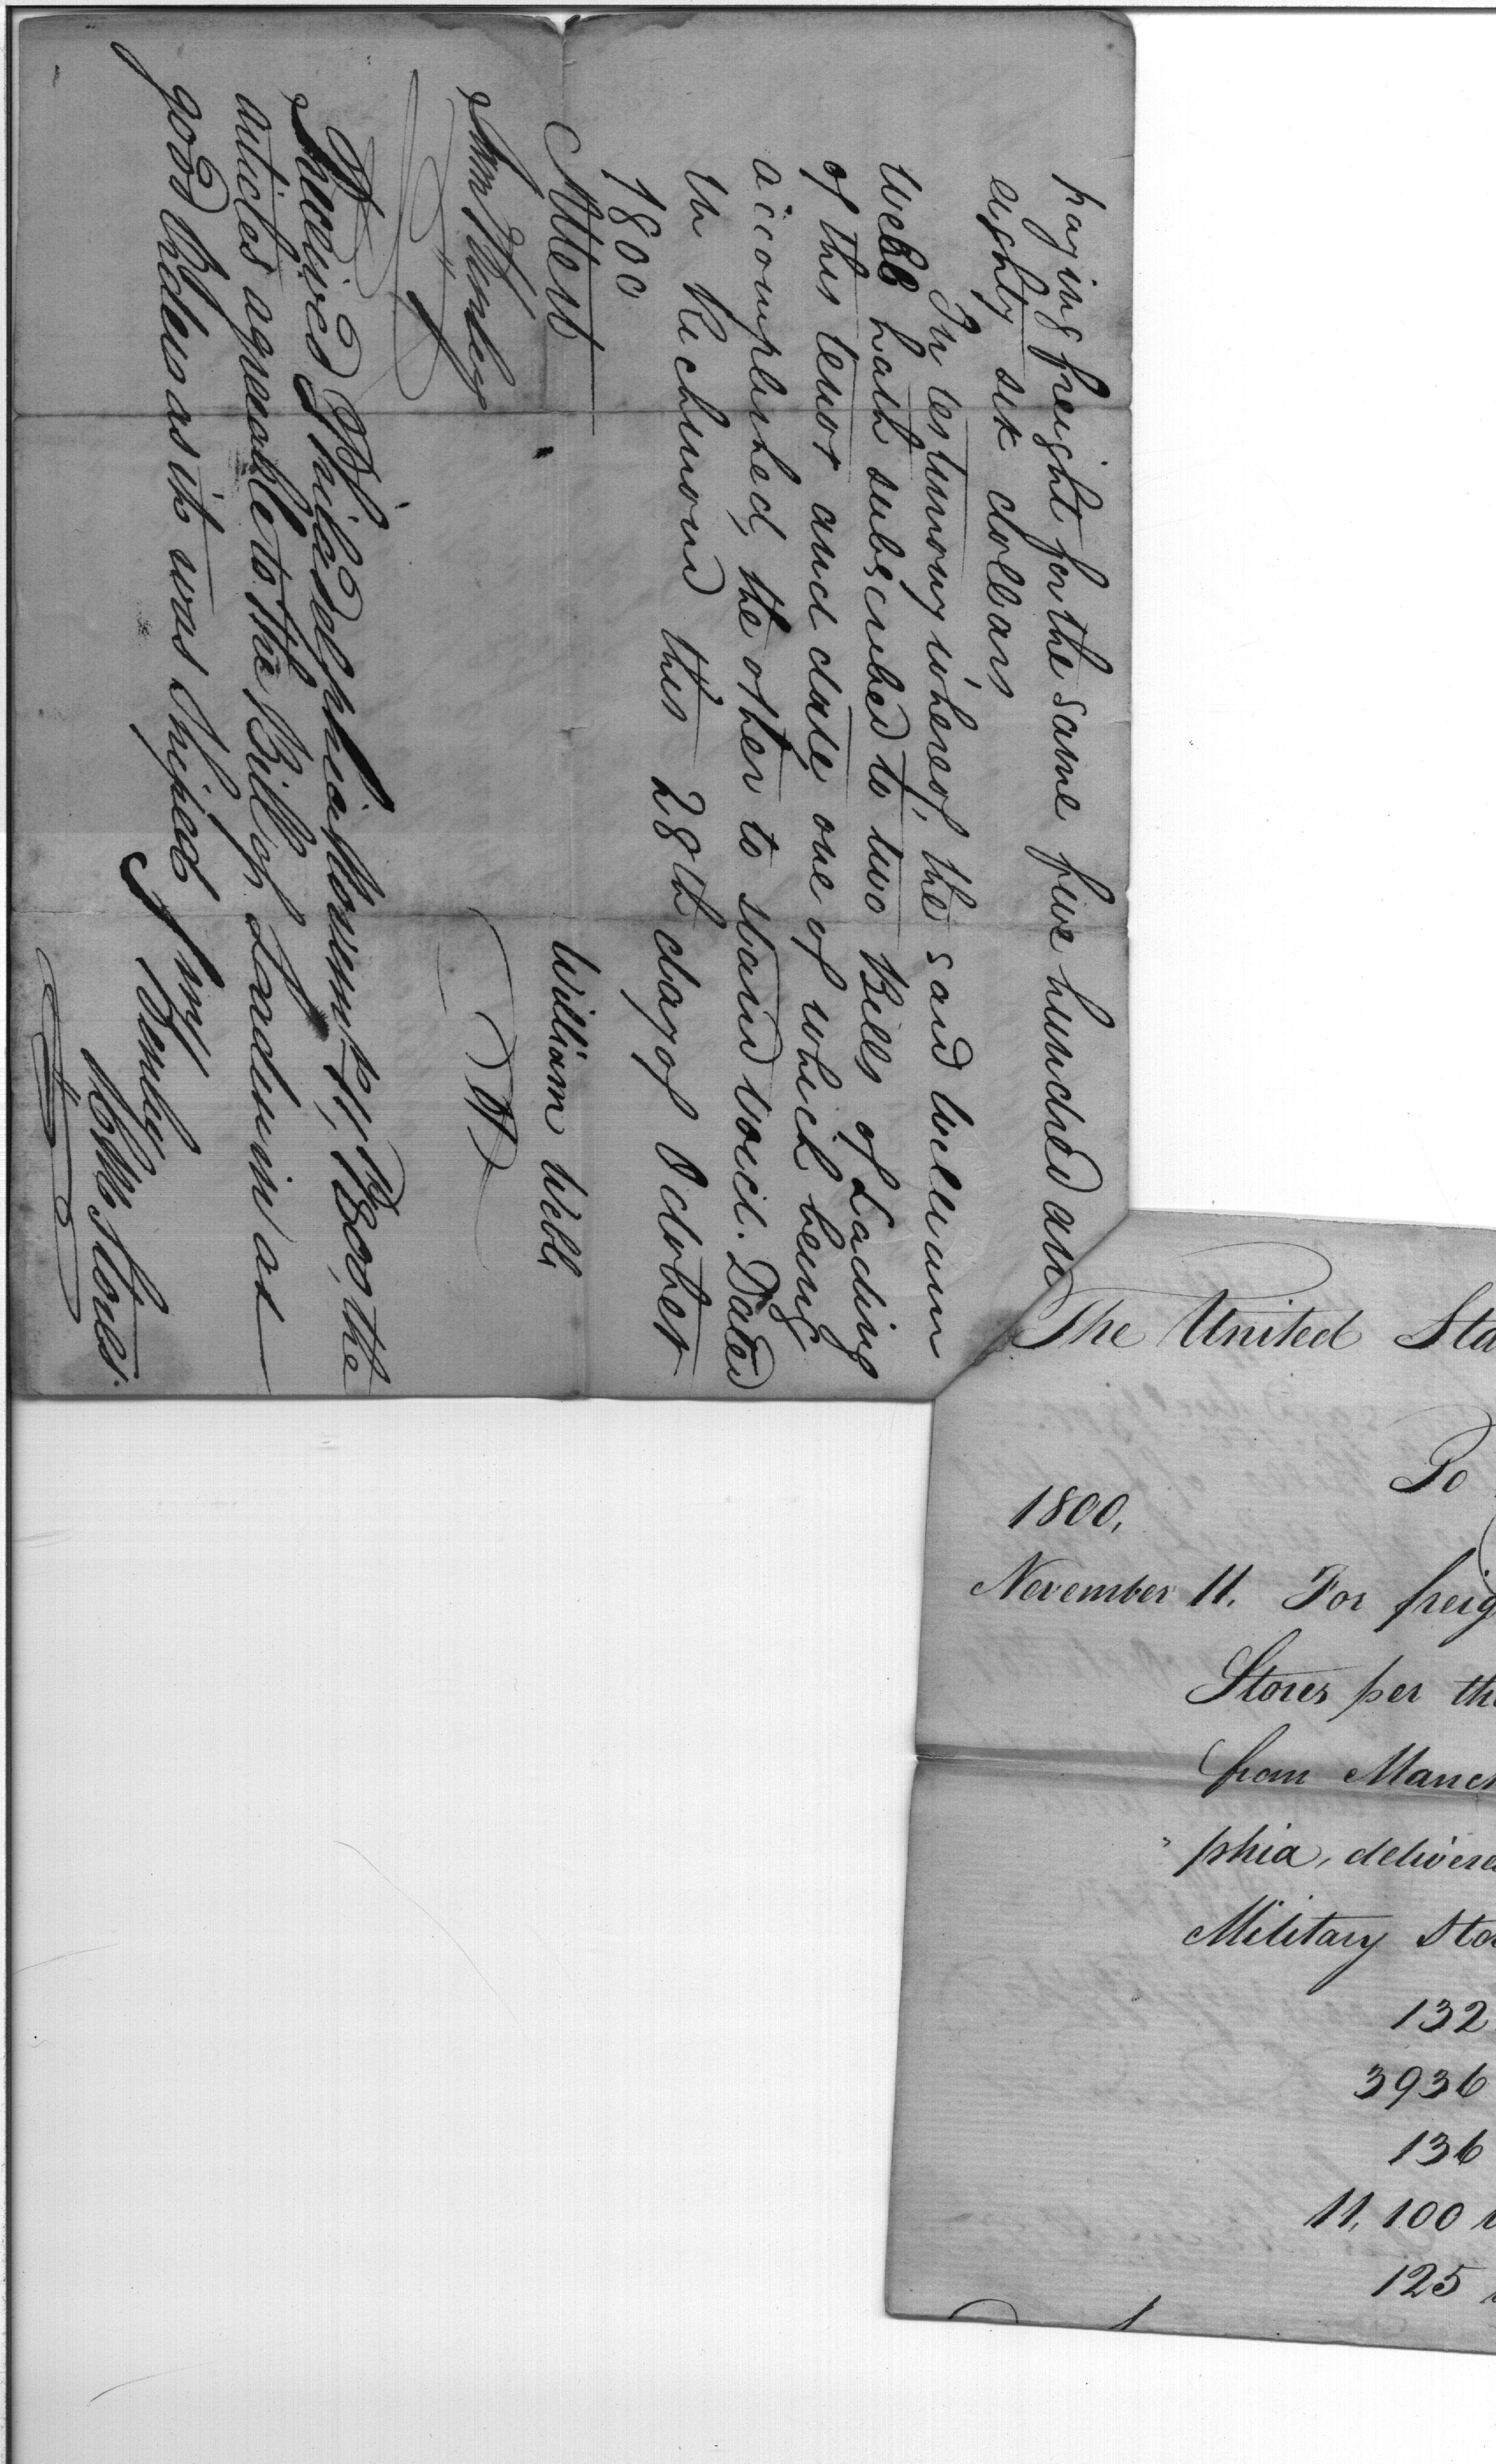 paying freight for the same five hundred an
eighty six dollars
In testimony whereof, the said William
Webb hath subscribed to two Bills of Lading
of this tenor and date, one of which being
accomplished, the other to stand void. Dated
in Richmond this 28th day of October
1800
Attest
William Webb
Received Philadelphia Novemb. 11, 1800, the
articles agreeable to the Bill of Ladin in as
good Order as it was Shiped
The United Sta
To
1800,
November 11. For freig
Stores per the
from Manch
phia, delivere
Military Sto
132
3936
136
11,100
125